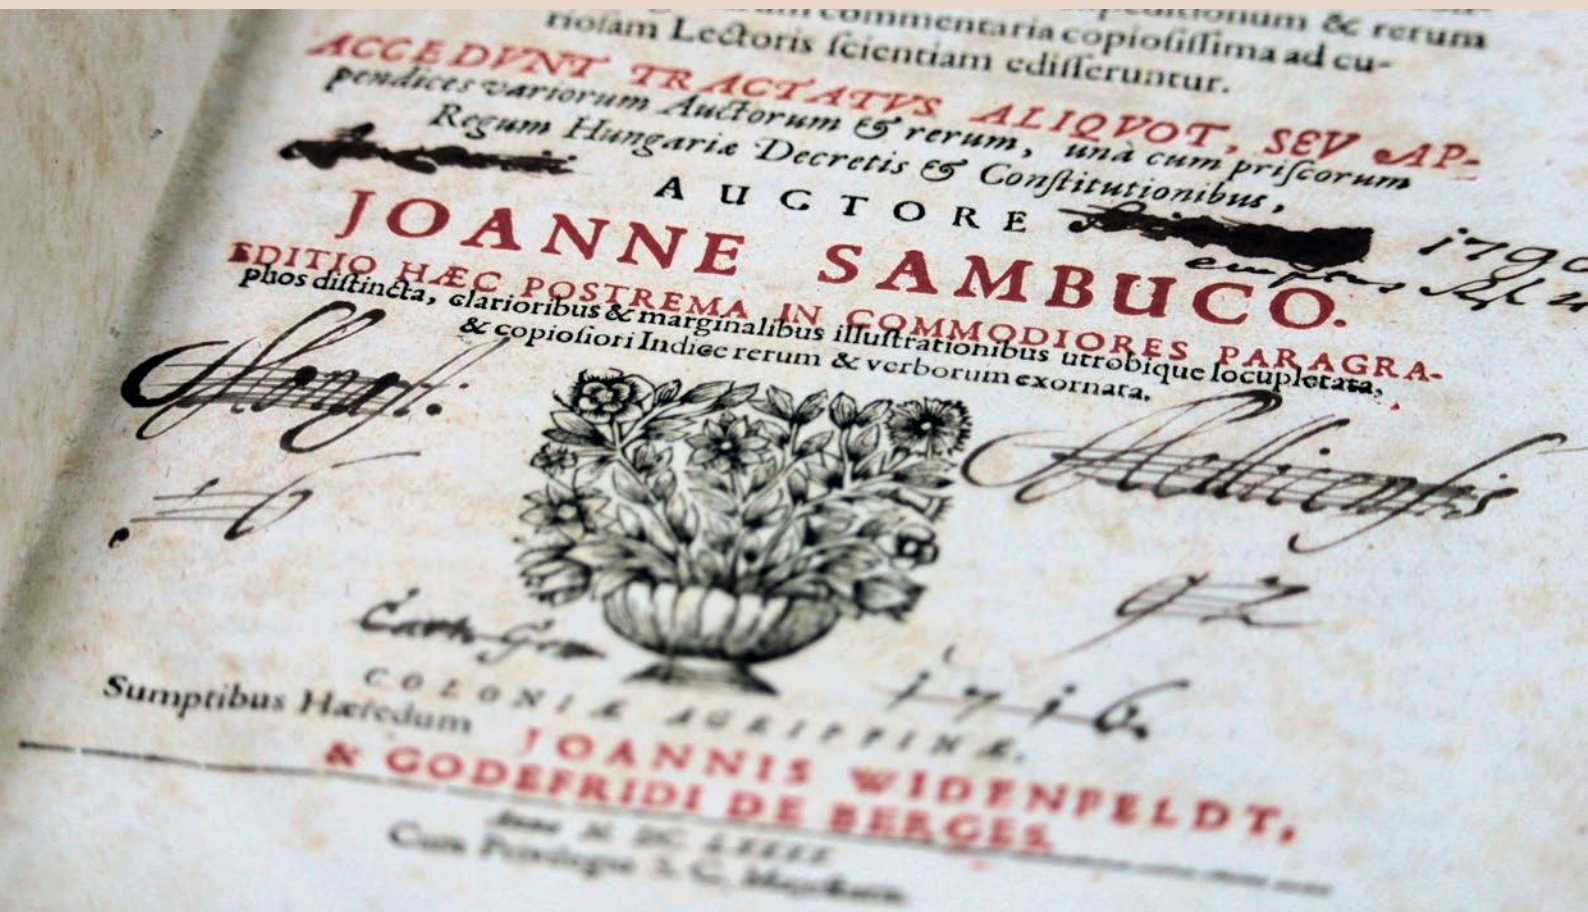 commentaria copiosissima ad cu-
riosam Lectoris scientiam edisseruntur.
ACCEDVNT TRACTATVS ALIQVOT, SEV AP-
pendices variorum Auctorum & rerum, unà cum priscorum
Regum Hungariæ Decretis & Constitutionibus,
AUCTORE
1790
JOANNE SAMBUCO.
EDITIO HÆC POSTREMA IN COMMODIORES PARAGRA-
phos distincta, clarioribus & marginalibus illustrationibus utrobique locupletata,
& copiosiori Indice rerum & verborum exornata.
Mellicensis
92
1716.
COLONIÆ AGRIPPINÆ.
Sumptibus Hæredum
JOANNIS WIDENFELDT,
& GODEFRIDI DE BERGES.
Cum Privilegio S. C. Majestatis